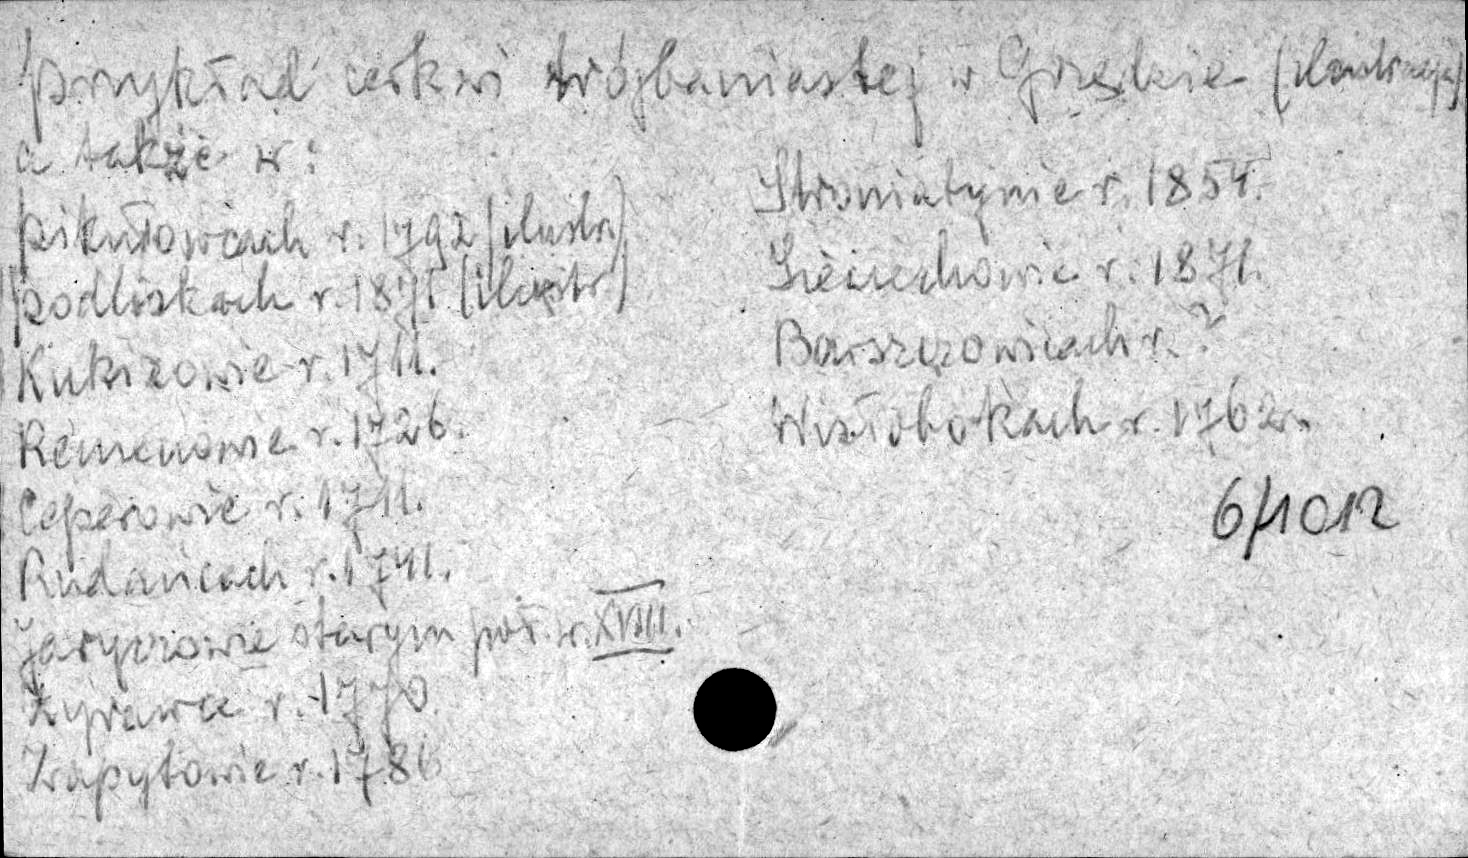 przykład cerkwi trójbaniastej w Grzędzie (ilustracja)
a także w:
pikułowicach r. 1792 (ilustr)
podliskach r. 1871 (ilustr)
Kukizowie r. 1711.
Remenowie r. 1726.
Ceperowie r. 1711.
Rudańcach r. 1741.
Jaryczowie starym poł. w. XVIII.
Żyrawce r. 1770.
Zapytowie r. 1786
Stroniatynie r. 1854.
Sieciechowie r. 1871.
Barszczowicach r. ?
Wisłobokach r. 1762r.
6/1012